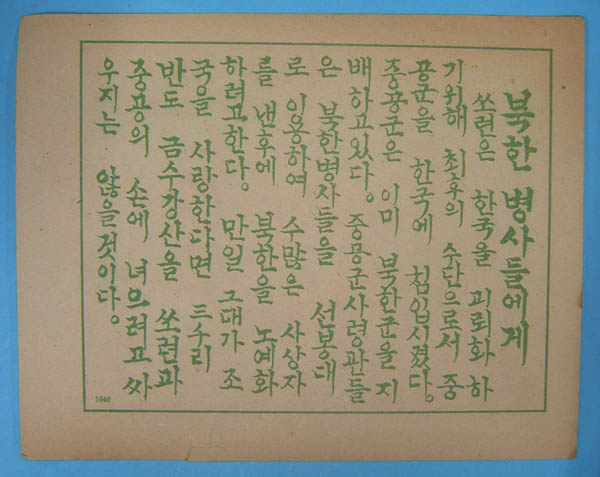 북한 병사들에게
쏘련은 한국을 괴뢰화 하
기위해 최후의 수단으로서 중
공군을 한국에 침입시켰다.
중공군은 이미 북한군을 지
배하고있다. 중공군사령관들
은 북한병사들을 선봉대
로 이용하여 수많은 사상자
를 낸후에 북한을 노예화
하려고한다. 만일 그대가 조
국을 사랑한다면
반도 금수강산을 쏘련과
중공의 손에 너으려고 싸
우지는 않을것이다.
1040